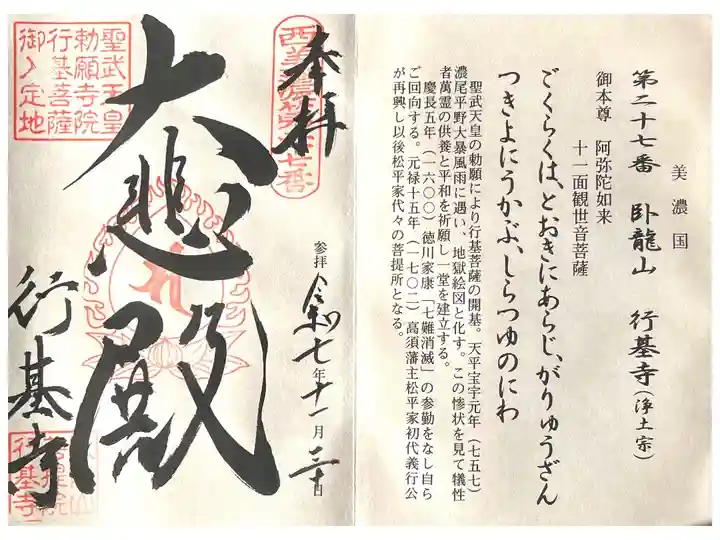 美濃国
第二十七番 臥龍山 行基寺(浄土宗)
御本尊 阿弥陀如来
十一面観世音菩薩
ごくらくは、とおきにあらじ、がりゅうざん
つきよにうかぶ、しらつゆのにわ
聖武天皇の勅願により行基菩薩の開基。天平宝字元年(七五七)
濃尾平野大暴風雨に遇い、地獄絵図と化す。この惨状を見て犠牲
者萬霊の供養と平和を祈願し一堂を建立する。
慶長五年(一六〇〇)徳川家康「七難消滅」の参勤をなし自ら
ご回向する。元禄十五年(一七〇二)高須藩主松平家初代義行公
が再興し以後松平家代々の菩提所となる。
奉拝
参拝 令和七年十一月三十日
大悲殿
行基寺
聖武天皇
勅願寺院
行基菩薩
御入定地
菩提院
行基寺